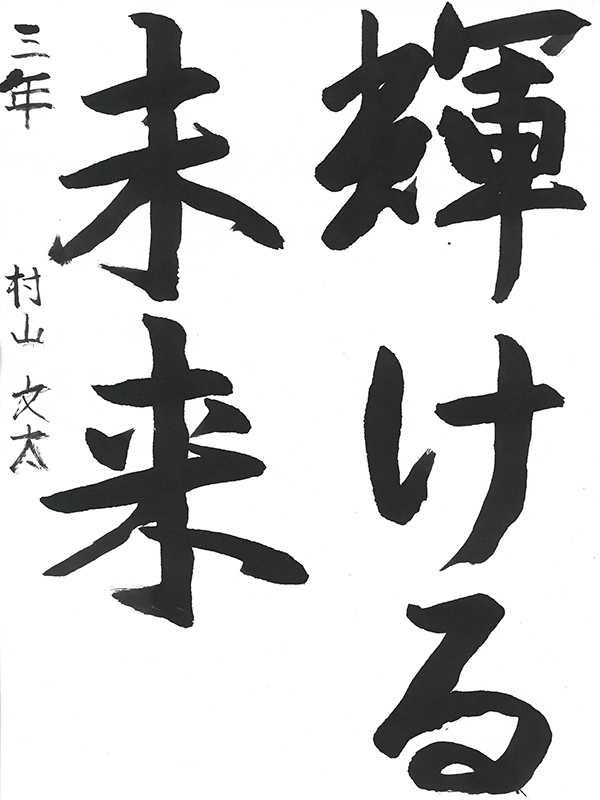 輝ける
未来
三年 村山文太